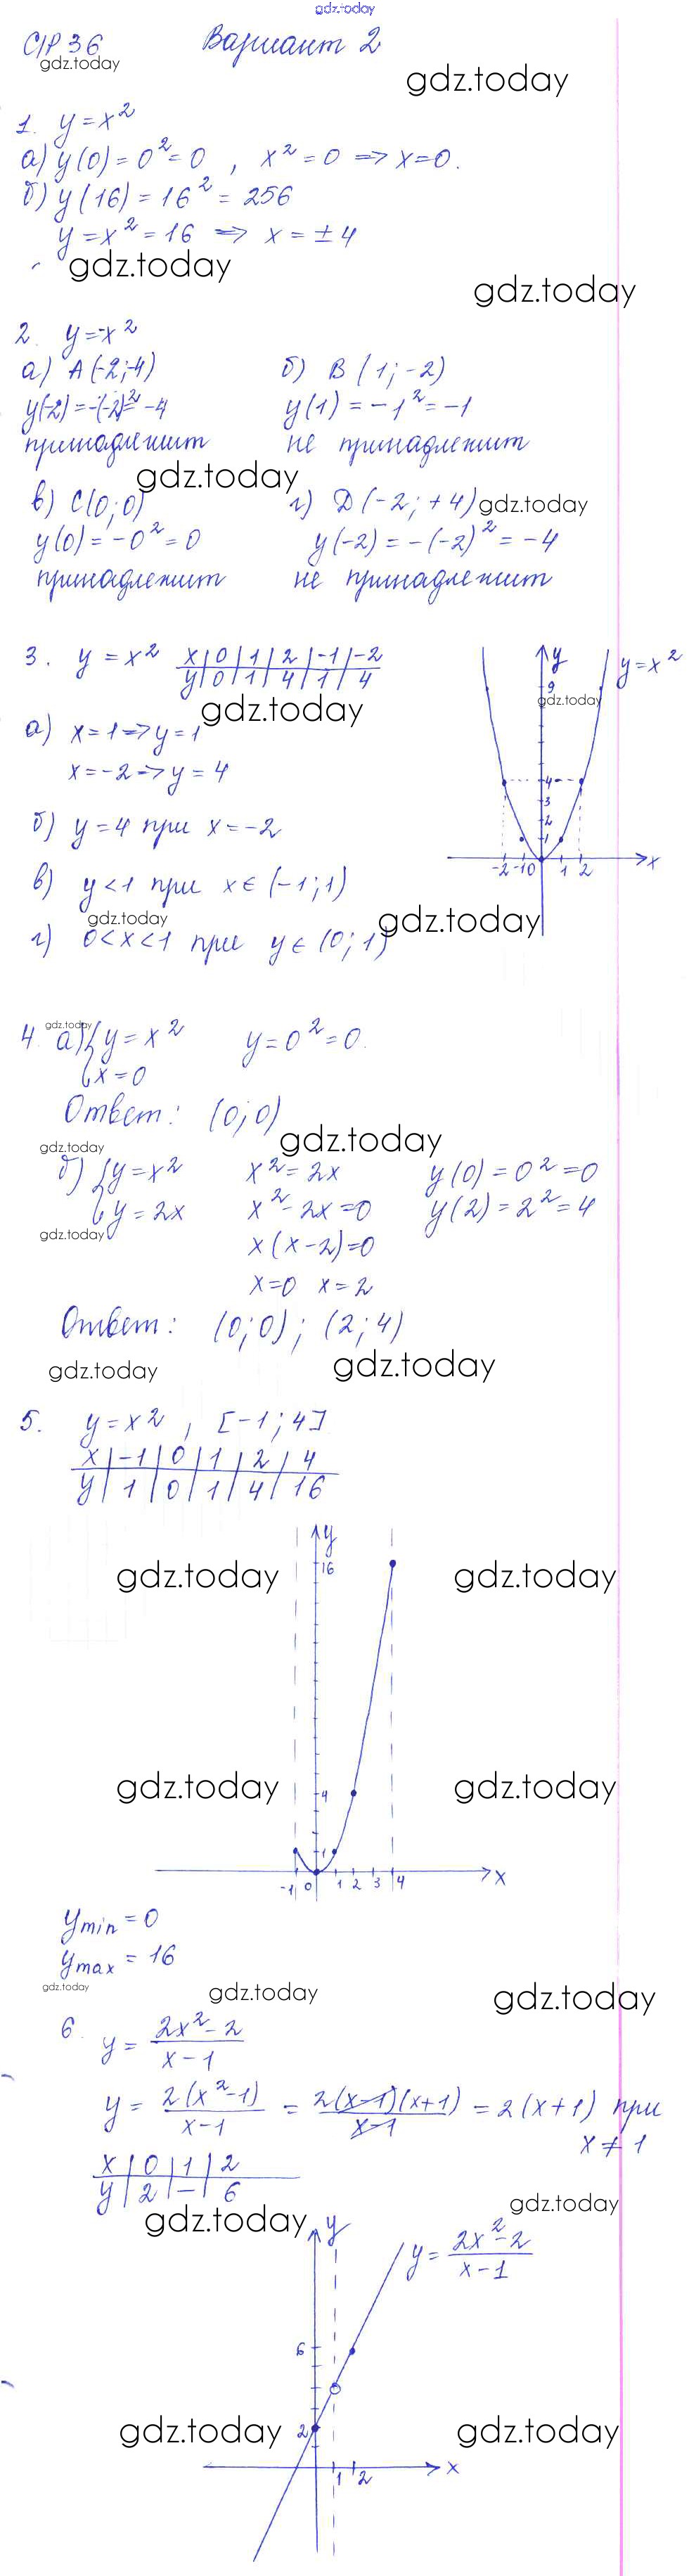 gdz.today
С/Р 36 Вариант 2
gdz.today
gdz.today
1. y = x²
а) y(0) = 0² = 0 , x² = 0 => x=0.
б) y(16) = 16² = 256
y = x² = 16 => x = ±4
gdz.today
gdz.today
2. y = -x²
а) A(-2;-4) б) B(1;-2)
y(-2) = -(-2)² = -4 y(1) = -1² = -1
принадлежит не принадлежит
gdz.today
в) C(0;0) г) D(-2;+4) gdz.today
y(0) = -0² = 0 y(-2) = -(-2)² = -4
принадлежит не принадлежит
3. y = x² x | 0 | 1 | 2 | -1 | -2
y | 0 | 1 | 4 | 1 | 4
y y = x²
9
gdz.today
gdz.today
а) x=1 => y=1
x=-2 => y=4
4
3
2
1
-2 -1 0 1 2 x
б) y=4 при x=-2
в) y<1 при x∈(-1;1)
gdz.today
gdz.today
г) 0<x<1 при y∈(0;1)
gdz.today
4. а) { y = x² y = 0² = 0.
x = 0
Ответ: (0;0)
gdz.today
gdz.today
б) { y = x² x² = 2x y(0) = 0² = 0
y = 2x x² - 2x = 0 y(2) = 2² = 4
gdz.today
x(x-2)=0
x=0 x=2
Ответ: (0;0); (2;4)
gdz.today
gdz.today
5. y = x² , [-1;4]
x | -1 | 0 | 1 | 2 | 4
y | 1 | 0 | 1 | 4 | 16
y
16
gdz.today gdz.today
gdz.today gdz.today
4
1
-1 0 1 2 3 4 x
y min = 0
y max = 16
gdz.today
gdz.today
gdz.today
6. y = (2x²-2)/(x-1)
y = 2(x²-1)/(x-1) = 2(x-1)(x+1)/(x-1) = 2(x+1) при
x ≠ 1
x | 0 | 1 | 2
y | 2 | — | 6
gdz.today
gdz.today
y y = (2x²-2)/(x-1)
6
gdz.today gdz.today
2
1 2 x